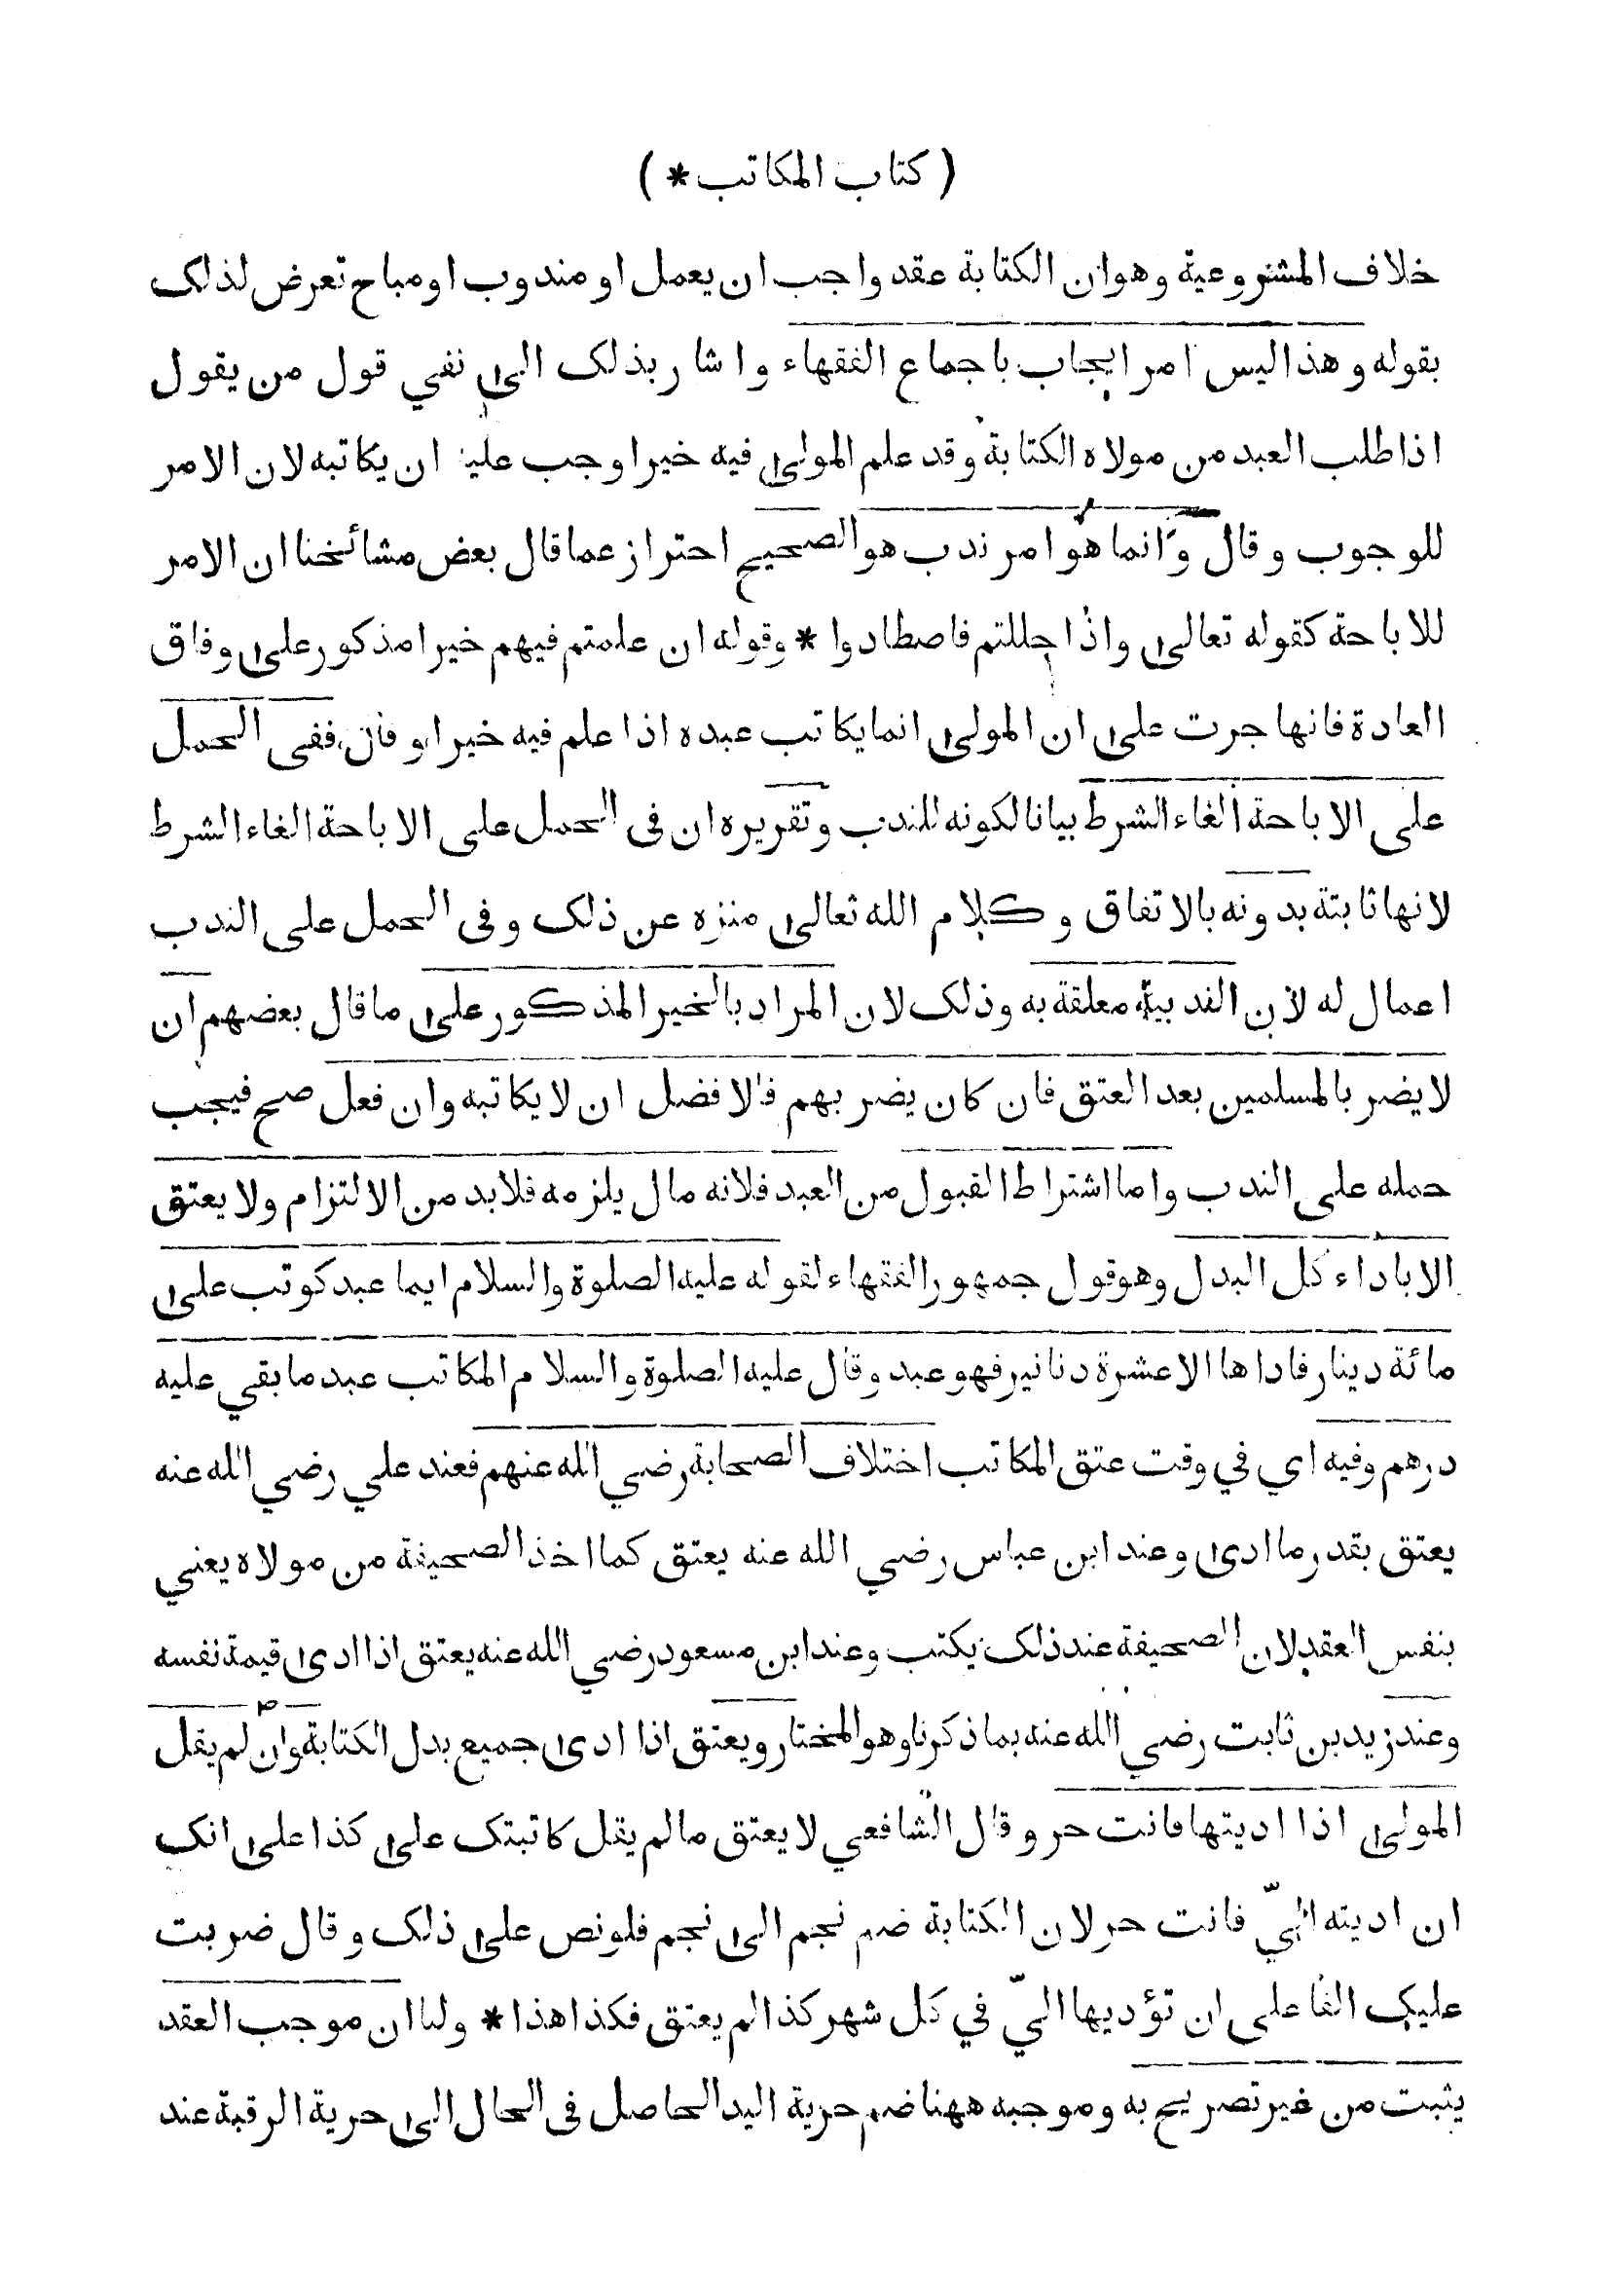 ( كتاب المكاتب * )
خلاف المشروعية وهو ان الكتابة عقد واجب ان يعمل او مندوب او مباح تعرض لذلك
بقوله وهذا ليس امر ايجاب باجماع الفقهاء واشار بذلك الى نفي قول من يقول
اذا طلب العبد من مولاه الكتابة وقد علم المولى فيه خيرا وجب عليه ان يكاتبه لان الامر
للوجوب وقال وانما هو امر ندب هو الصحيح احتراز عما قال بعض مشائخنا ان الامر
للاباحة كقوله تعالى واذا حللتم فاصطادوا * وقوله ان علمتم فيهم خيرا مذكور على وفاق
العادة فانها جرت على ان المولى انما يكاتب عبده اذا علم فيه خيرا وفاق ففى الحمل
على الاباحة الغاء الشرط بيانا لكونه للندب وتقريره ان فى الحمل على الاباحة الغاء الشرط
لانها ثابتة بدونه بالاتفاق وكلام الله تعالى منزه عن ذلك وفى الحمل على الندب
اعمال له لان الندبية معلقة به وذلك لان المراد بالخير المذكور على ما قال بعضهم ان
لا يضر بالمسلمين بعد العتق فان كان يضر بهم فالافضل ان لا يكاتبه وان فعل صح فيجب
حمله على الندب واما اشتراط القبول من العبد فلانه مال يلزمه فلابد من الالتزام ولا يعتق
الا باداء كل البدل وهو قول جمهور الفقهاء لقوله عليه الصلوة والسلام ايما عبد كوتب على
مائة دينار فاداها الا عشرة دنانير فهو عبد وقال عليه الصلوة والسلام المكاتب عبد ما بقي عليه
درهم وفيه اي في وقت عتق المكاتب اختلاف الصحابة رضي الله عنهم فعند علي رضي الله عنه
يعتق بقدر ما ادى وعند ابن عباس رضي الله عنه يعتق كما اخذ الصحيفة من مولاه يعني
بنفس العقد لان الصحيفة عند ذلك يكتب وعند ابن مسعود رضي الله عنه يعتق اذا ادى قيمة نفسه
وعند زيد بن ثابت رضي الله عنه بما ذكرنا وهو المختار ويعتق اذا ادى جميع بدل الكتابة وان لم يقل
المولى اذا اديتها فانت حر وقال الشافعي لا يعتق ما لم يقل كاتبتك على كذا على انك
ان اديته اليّ فانت حر لان الكتابة ضم نجم الى نجم فلو نص على ذلك وقال ضربت
عليك الفا على ان تؤديها اليّ في كل شهر كذا لم يعتق فكذا هذا * ولنا ان موجب العقد
يثبت من غير تصريح به وموجبه ههنا ضم حرية اليد الحاصل فى الحال الى حرية الرقبة عند